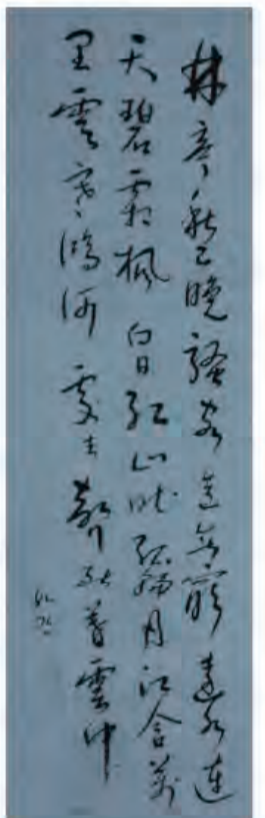 林亭秋已晚騷客意無窮遠水連
天碧霜楓向日紅山吐孤輪月江含萬
里雲塞鴻何處去聲斷暮雲中